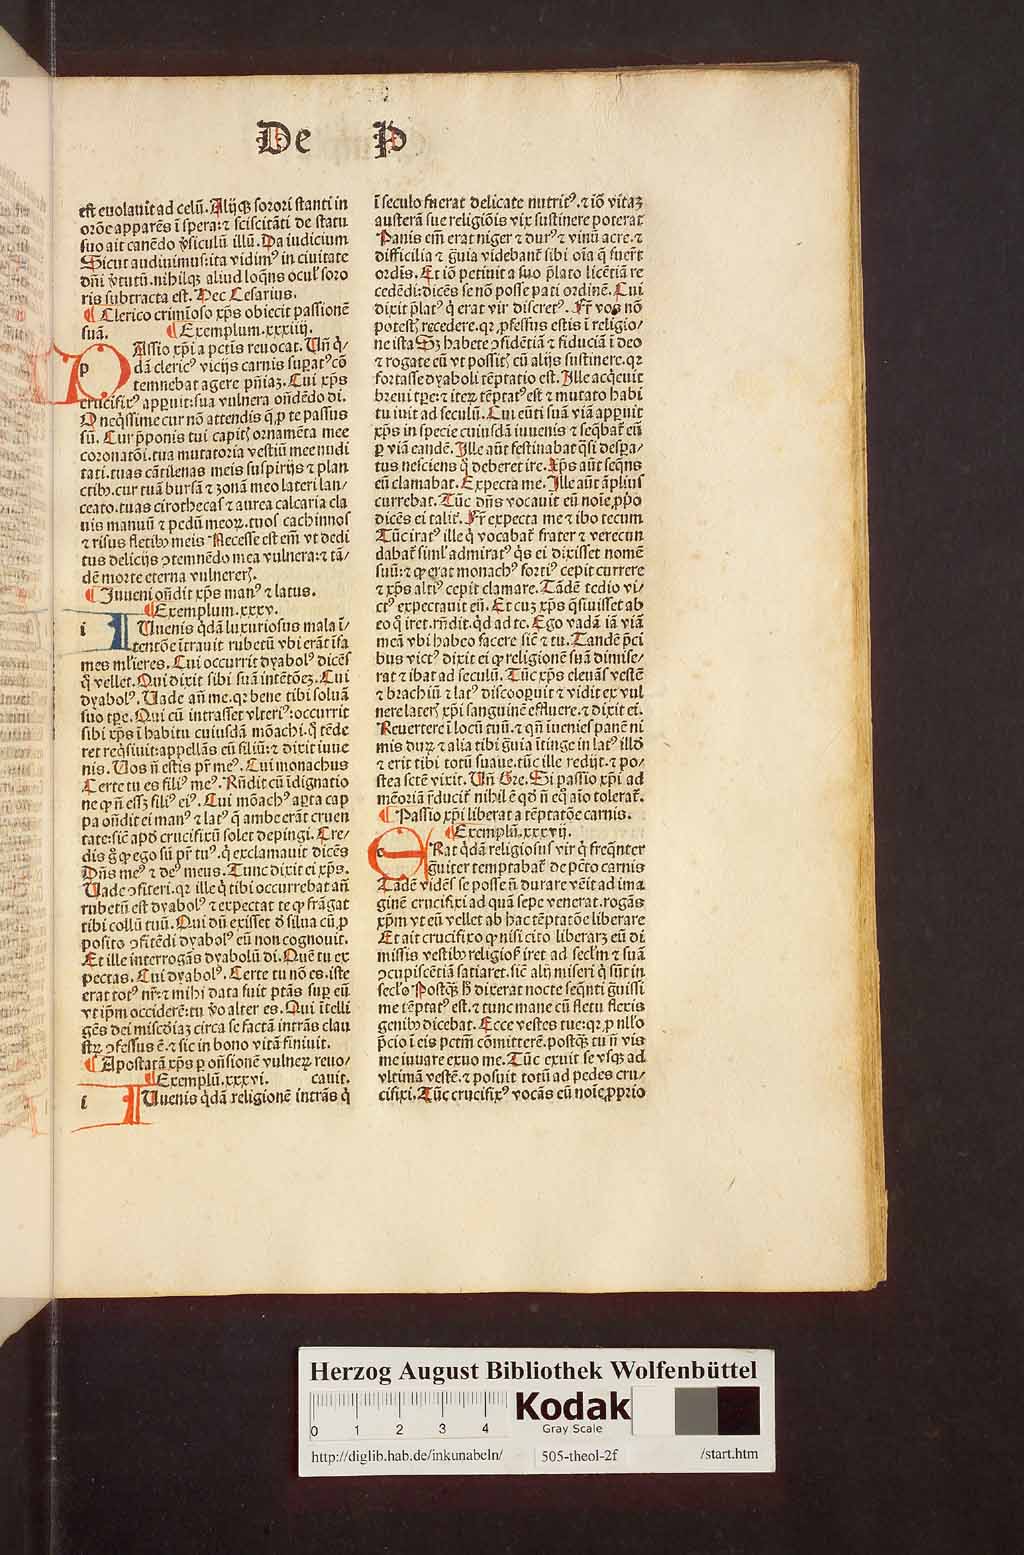 De P
est euolauit ad celū. Alijqꝫ sorori stanti in
orōe apparēs ī spera: ⁊ sciscitāti de statu
suo ait canēdo v̓siculū illū. Da iudicium
Sicut audiuimus: ita vidimꝰ in ciuitate
dn̄i v̓tutū. nihilqꝫ aliud loquēs oculꝭ soro
ris subtracta est. Hec Cesarius.
¶ Clerico crimīoso xp̄s obiecit passionē
suā. ¶ Exemplum. xxxiiij.
p Assio xp̄i a pctīs reuocat. Un̄ q̄/
dā clericꝰ vicijs carnis suꝑatꝰ cō
temnebat agere pn̄iaꝫ. Cui xp̄s
crucifixꝰ apparuit: sua vulnera on̄dēdo di.
O neq̄ssime cur nō attendis q̄ ꝓ te passus
sū. Cur p̄ponis tui capitꝭ ornamēta mee
coronatōi. tua mutatoria vestiū mee nudi
tati. tuas cātilenas meis suspirijs ⁊ plan
ctibꝰ. cur tuā bursā ⁊ zonā meo lateri lan/
ceato. tuas cirothecas ⁊ aurea calcaria cla
uis manuū ⁊ pedū meoꝝ. tuos cachinnos
⁊ risus fletibꝰ meis Necesse est em̄ vt dedi
tus delicijs ↄtemnēdo mea vulnera: ⁊ tā/
dē morte eterna vulnererꝭ.
¶ Iuueni on̄dit xp̄s manꝰ ⁊ latus.
¶ Exemplum. xxxv.
i Uuenis q̄dā luxuriosus mala ī/
tentōe ītrauit rubetū vbi erāt īfa
mes ml̓ieres. Cui occurrit dyabolꝰ dicēs
q̄ vellet. Qui dixit sibi suā intētōeꝫ. Cui
dyabolꝰ. Uade an̄ me. qꝛ bene tibi soluā
suo tꝑe. Qui cū intrasset vlteriꝰ: occurrit
sibi xp̄s ī habitu cuiusdā mōachi. q̄ tēde
ret reqsiuit: appellās eū filiū: ⁊ dixit iuue
nis. Uos n̄ estis pr̄ meꝰ. Cui monachus
Certe tu es filiꝰ meꝰ. Rn̄dit cū īdignatio
ne ꝙ n̄ essꝫ filiꝰ eiꝰ. Cui mōachꝰ aꝑta cap
pa on̄dit ei manꝰ ⁊ latꝰ q̄ ambe erāt cruen
tate: sic̄ apd̓ crucifixū solet depingi. Cre/
dis ḡ ꝙ ego sū pr̄ tuꝰ. q̄ exclamauit dicēs
Dn̄s meꝰ ⁊ deꝰ meus. Tunc dixit ei xp̄s.
Uade ↄfiteri. qꝛ ille q̄ tibi occurrebat an̄
rubetū est dyabolꝰ ⁊ expectat te ꝙ frāgat
tibi collū tuū. Qui dū exisset d̓ silua cū ꝓ
posito ↄfitēdi dyabolꝰ eū non cognouit.
Et ille interrogās dyabolū di. Quē tu ex
pectas. Cui dyabolꝰ. Certe tu nō es. iste
erat totꝰ nr̄: ⁊ mihi data fuit ptās suꝑ eū
vt ip̄m occiderē: tu v̓o alter es. Qui ītelli
gēs dei miscd̓iaꝫ circa se factā intrās clau
stꝝ ↄfessus ē. ⁊ sic in bono vitā finiuit.
¶ Apostatā xp̄s ꝑ on̄sionē vulneꝝ reuo/
¶ Exemplū. xxxvi. cauit.
i Uuenis q̄dā religionē intrās q̄
ī seculo fuerat delicate nutritꝰ. ⁊ iō vitaꝫ
austerā sue religiōis vix sustinere poterat
Panis em̄ erat niger ⁊ durꝰ ⁊ vinū acre. ⁊
difficilia ⁊ gͣuia videbant̄ sibi oīa q̄ fuer̄t
ordīs. Et iō petiuit a suo p̄lato licētiā re
cedēdi: dicēs se nō posse pati ordinē. Cui
dixit p̄latꝰ q̄ erat vir discretꝰ. Fr̄ vos nō
potestꝭ recedere. qꝛ ꝓfessus estis ī religio/
ne ista Sꝫ habete ↄfidētiā ⁊ fiduciā ī deo
⁊ rogate eū vt possitꝭ cū alijs sustinere. qꝛ
fortasse dyaboli tēptatio est. Ille acq̄euit
breui tꝑe: ⁊ iteꝝ tēptatꝰ est ⁊ mutato habi
tu iuit ad seculū. Cui eūti suā viā apparuit
xp̄s in specie cuiusdā iuuenis ⁊ seq̄bat̄ eū
ꝑ viā eandē. Ille aūt festinabat q̄si despa/
tus nesciens q̄ deberet ire. Xp̄s aūt seq̄ns
eū clamabat. Expecta me. Ille aūt āplius
currebat. Tūc dn̄s vocauit eū noīe ꝓpo
dicēs ei talit̄. Fr̄ expecta me ⁊ ibo tecum
Tūc iratꝰ ille q̄ vocabat̄ frater ⁊ verecun
dabat̄ siml̓ admiratꝰ q̄s ei dixisset nomē
suū: ⁊ ꝙ erat monachꝰ fortiꝰ cepit currere
⁊ xp̄s altiꝰ cepit clamare. Tādē tedio vi/
ctꝰ expectauit eū. Et cuꝫ xp̄s q̄siuisset ab
eo q̄ iret. rn̄dit. qd̓ ad te. Ego vadā iā viā
meā vbi habeo facere sic̄ ⁊ tu. Tandē p̄ci
bus victꝰ dixit ei ꝙ religionē suā dimise/
rat ⁊ ibat ad seculū. Tūc xp̄s eleuās vestē
⁊ brachiū ⁊ latꝰ discoopuit ⁊ vidit ex vul
nere laterꝭ xp̄i sanguinē effluere. ⁊ dixit ei.
Reuertere ī locū tuū. ⁊ qn̄ iuenies panē ni
mis duꝝ ⁊ alia tibi gͣuia ītinge in latꝰ illd̓
⁊ erit tibi totū suaue. tūc ille redijt. ⁊ po/
stea sctē vixit. Un̄ Gre. Si passio xp̄i ad
mēoriā r̄ducit̄ nihil ē qd̓ n̄ eq̄ aīo tolerat̄.
¶ Passio xp̄i liberat a tēptatōe carnis.
¶ Exemplū. xxxvij.
e Rat q̄dā religiosus vir q̄ freq̄nter
gͣuiter temptabat̄ de pctō carnis
Tādē vidēs se posse n̄ durare vēit ad ima
ginē crucifixi ad quā sepe venerat. rogās
xp̄m vt eū vellet ab hac tēptatōe liberare
Et ait crucifixo ꝙ nisi cito liberarꝫ eū di
missis vestibꝰ religiosꝭ iret ad secl̓m ⁊ suā
ↄcupiscētiā satiaret. sic̄ alij miseri q̄ sūt in
secl̓o Postqꝫ h̓ dixerat nocte seq̄nti gͣuissi
me tēptatꝰ est. ⁊ tunc mane cū fletu flexis
genibꝰ dicebat. Ecce vestes tue: qꝛ ꝓ nll̓o
p̄cio ī eis pctm̄ cōmitterē. postqꝫ tu n̄ vis
me iuuare exuo me. Tūc exuit se vsqꝫ ad
vltimā vestē. ⁊ posuit totū ad pedes cru/
cifixi. Tūc crucifixꝰ vocās eū noīe ꝓprio
Herzog August Bibliothek Wolfenbüttel
0 1 2 3 4 Kodak
Gray Scale
http://diglib.hab.de/inkunabeln/ 505-theol-2f /start.htm